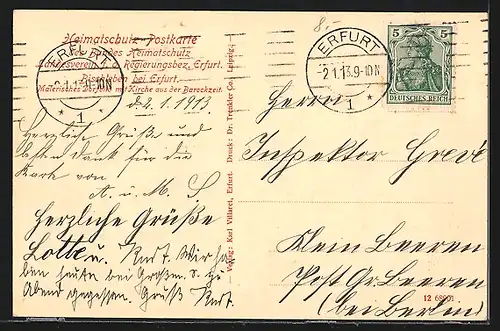 8.-
Heimatschutz-Postkarte
des Bundes Heimatschutz
Regierungsbez. Erfurt.
bei Erfurt.
Malerisches mit Kirche aus der Barockzeit.
ERFURT
-2.1.13.9-10N
* 1 *
ERFURT
-2.1.13.9-10N
* 1 *
5 5
DEUTSCHES REICH
d. 2.1.1913.
Herzliche Grüße und
besten Dank für die
Karte von
A. u. M. S
Herzliche Grüße
Lotte u. Kurt. Wir ha-
ben heute bei Großm. s. zu
Abend gegessen. Gruß Kurt.
Verlag: Karl Villaret, Erfurt. Druck: Dr. Trenkler Co., Leipzig.
Herrn
Inspektor Grevé
Klein Beeren
Post Gr. Beeren
(bei Berlin)
12 68001